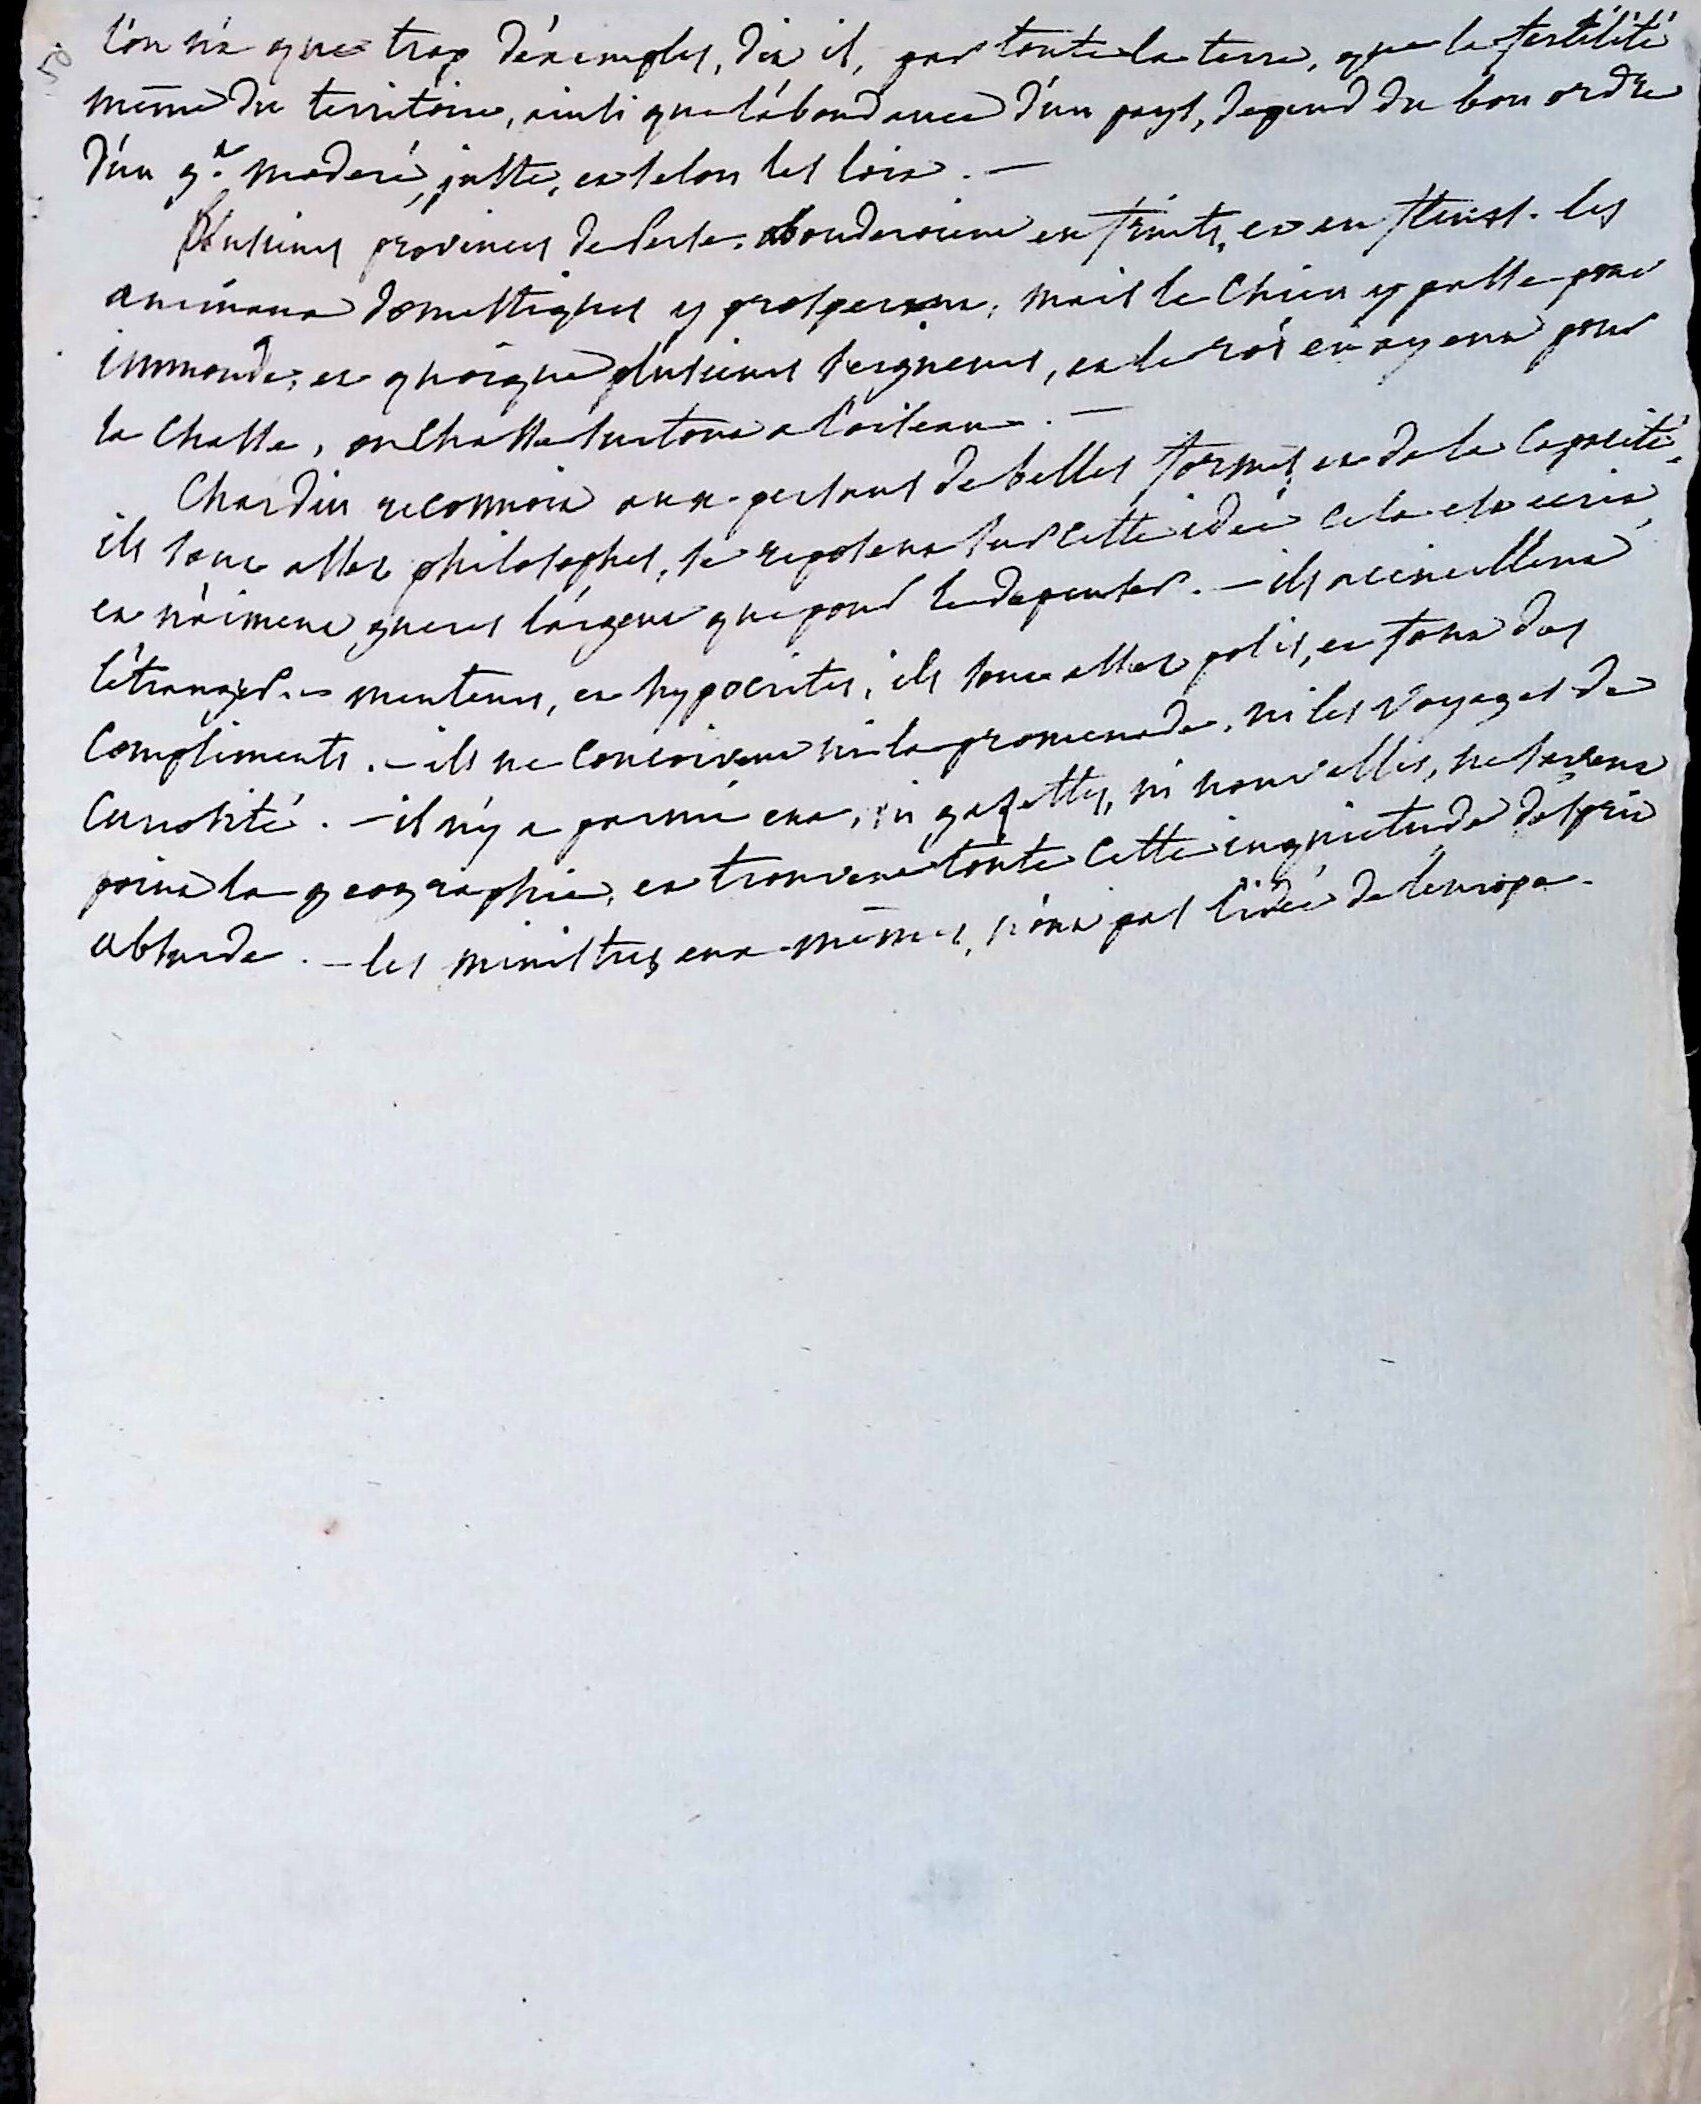 50
l'on n'a que trop d'éxemples, dit il, par toute la terre, que la fertilité
même du territoire, ainsi que l'abondance d'un pays, depend du bon ordre
d'un g.t moderé, juste, et selon les loix. —
Plusieurs provinces de Perse. abonderoient en fruits, et en fleurs. les
animaux domestiques y prosperent, mais le chien y passe pour
immonde, et quoique plusieurs seigneurs, et le roi en ayent pour
la chasse, on chasse surtout a l'oiseau. —
Chardin reconnoit aux persans de belles formes, et de la capacité.
ils sont assez philosophes, se reposent sur cette idée cela est ecrit,
et n'aiment gueres l'argent que pour le depenser. — ils accueillent
l'étranger. — menteurs, et hypocrites, ils sont assez polis, et font des
compliments. — ils ne conçoivent ni la promenade, ni les voyages de
curiosité. — il n'y a parmi eux, ni gazettes, ni nouvelles, ne savent
point la geographie, et trouvent toute cette inquietude d'esprit
absurde. — les ministres eux-mêmes, n'ont pas l'idée de l'europe.